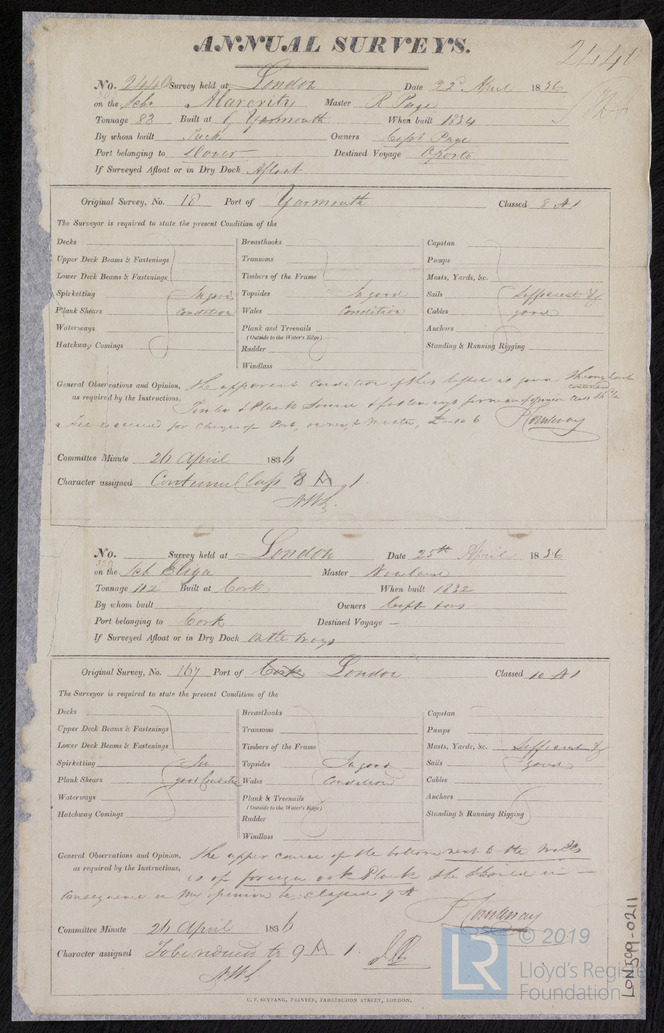 ANNUAL SURVEYS.
No. 2440 Survey held at London Date 22d April 1836
on the Schr Master R Page
Tonnage 83 Built at Yarmouth When built 1834
By whom built Owners Capt Page
Port belonging to Dover Destined Voyage Oporto
If Surveyed Afloat or in Dry Dock Afloat
Original Survey, No. 18 Port of Yarmouth Classed 8 A1
The Surveyor is required to state the present Condition of the
Decks Breasthooks Capstan
Upper Deck Beams & Fastenings Transoms Pumps
Lower Deck Beams & Fastenings Timbers of the Frame Masts, Yards, &c.
Spirketting In good Topsides In good Sails Sufficient &
Plank Shears Condition Wales Condition Cables good
Waterways Plank and Treenails Anchors
(Outside to the Water's Edge)
Hatchway Comings Rudder Standing & Running Rigging
Windlass
General Observations and Opinion, The apparent condition of this is good
as required by the Instructions. Timber & Plank
Committee Minute 26 April 1836
Character assigned Continued 8 A 1
No. Survey held at London Date 25th April 1836
on the Sch Eliza Master
Tonnage 112 Built at Cork When built 1832
By whom built Owners Capt
Port belonging to Cork Destined Voyage —
If Surveyed Afloat or in Dry Dock
Original Survey, No. 167 Port of Cork London Classed 10 A1
The Surveyor is required to state the present Condition of the
Decks Breasthooks Capstan
Upper Deck Beams & Fastenings Transoms Pumps
Lower Deck Beams & Fastenings Timbers of the Frame Masts, Yards, &c. Sufficient &
Spirketting In Topsides In good Sails good
Plank Shears good Condition Wales Condition Cables
Waterways Plank & Treenails Anchors
(Outside to the Water's Edge)
Hatchway Comings Rudder Standing & Running Rigging
Windlass
General Observations and Opinion, The upper course of the bottom next to the Wales
as required by the Instructions, is of foreign oak Plank She should in
consequence in my opinion be classed 9 A
Committee Minute 26 April 1836
Character assigned To be reduced to 9 A 1.
C. F. SEYFANG, PRINTER, FARRINGDON STREET, LONDON.
LR © 2019
Lloyd's Register
Foundation
LON599-0211